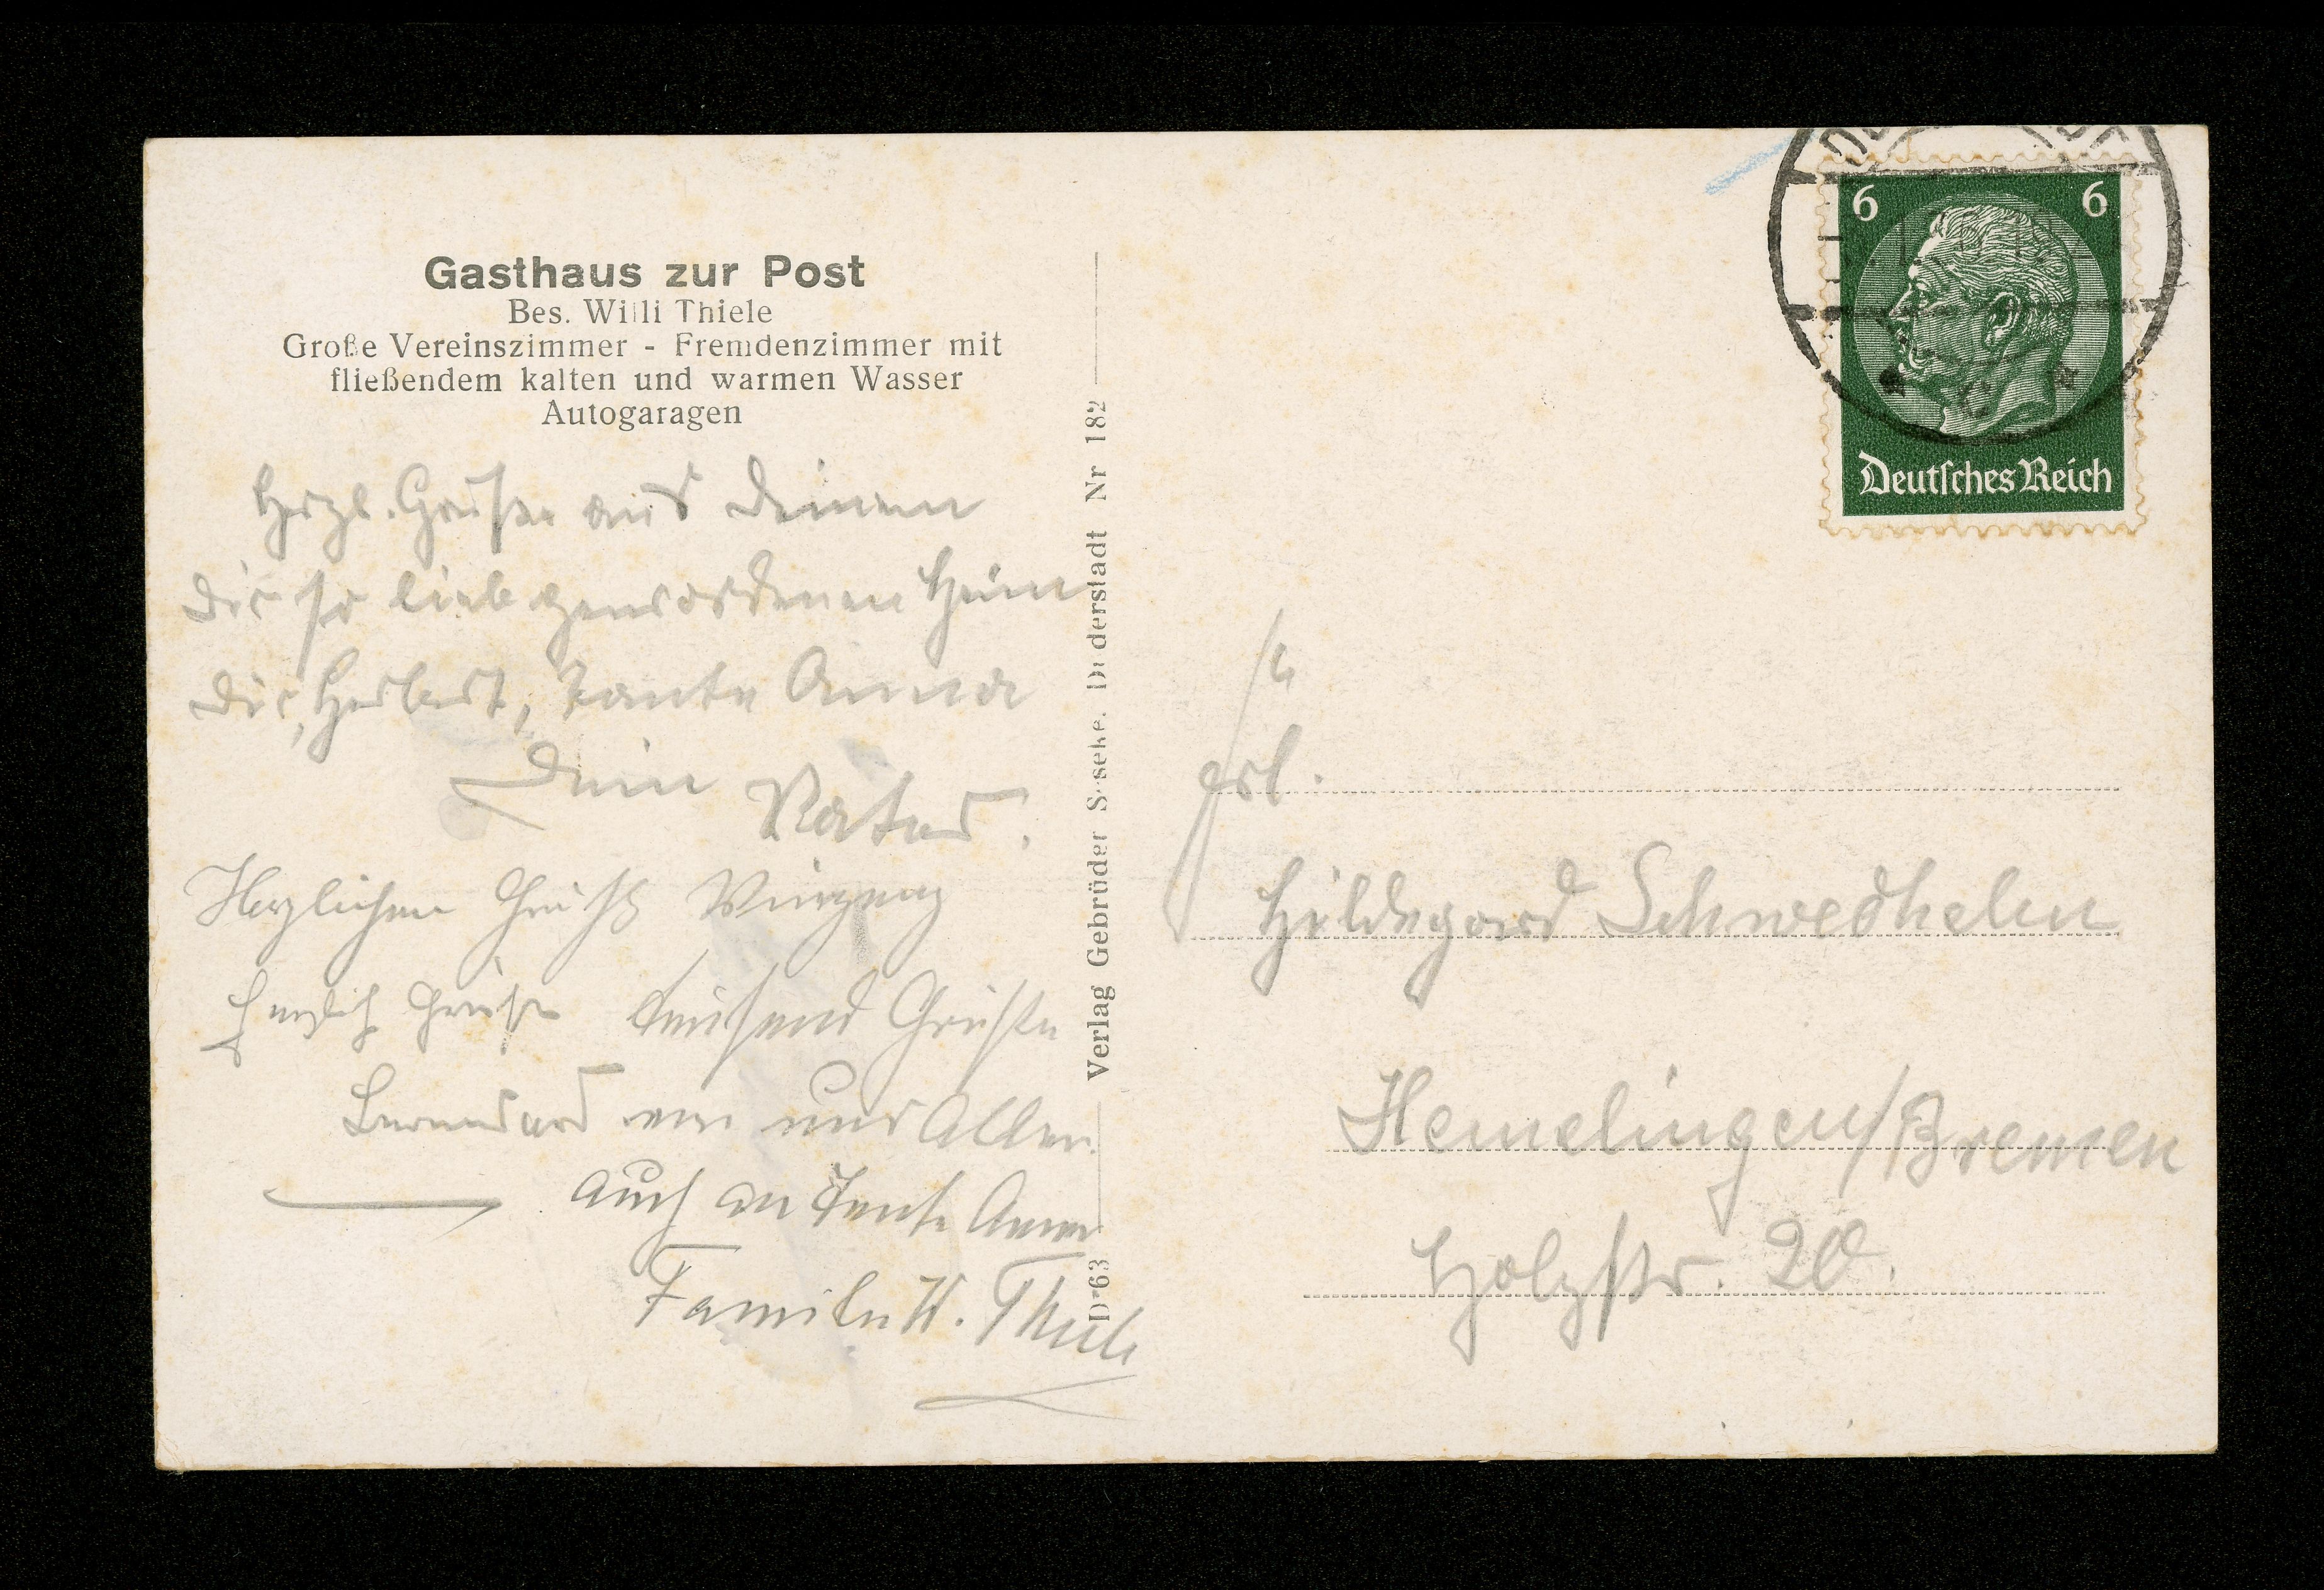 Gasthaus zur Post
Bes. Willi Thiele
Große Vereinszimmer - Fremdenzimmer mit
fließendem kalten und warmen Wasser
Autogaragen
Herzl. Grüße aus
Dir so lieb gewordenen Heim
Dir, Herbert, Tante Anna
Dein Vater.
Herzlichen Gruß
Herzlich Grüße tausend Grüße
von uns Allen
auch an Tante Anna
Familie W. Thiele
Verlag Gebrüder Duderstadt Nr 182
D 63
6 6
Deutsches Reich
Frl.
Hildegard Schwedhelm
Hemelingen/Bremen
Holzstr. 20.